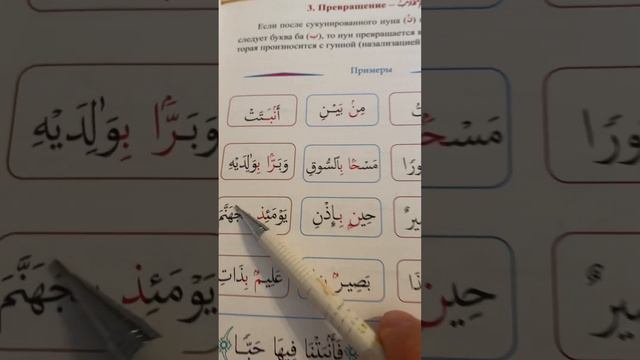 3. Превращение –
Если после сукунированного нуна (نْ)
следует буква ба (ب), то нун превращается в
торая произносится с гунной (назализацией
Примеры
مِنۢ بَيْنِ أَنۢبَتَتْ
مَسْحًۢا بِالسُّوقِ وَبَرًّۢا بِوَٰلِدَيْهِ
حِينٍۭ بِإِذْنِ يَوْمَئِذٍۭ بِجَهَنَّمَ
بَصِيرٌۢ عَلِيمٌۢ بِذَاتِ
﴿فَأَنۢبَتْنَا فِيهَا حَبًّا﴾